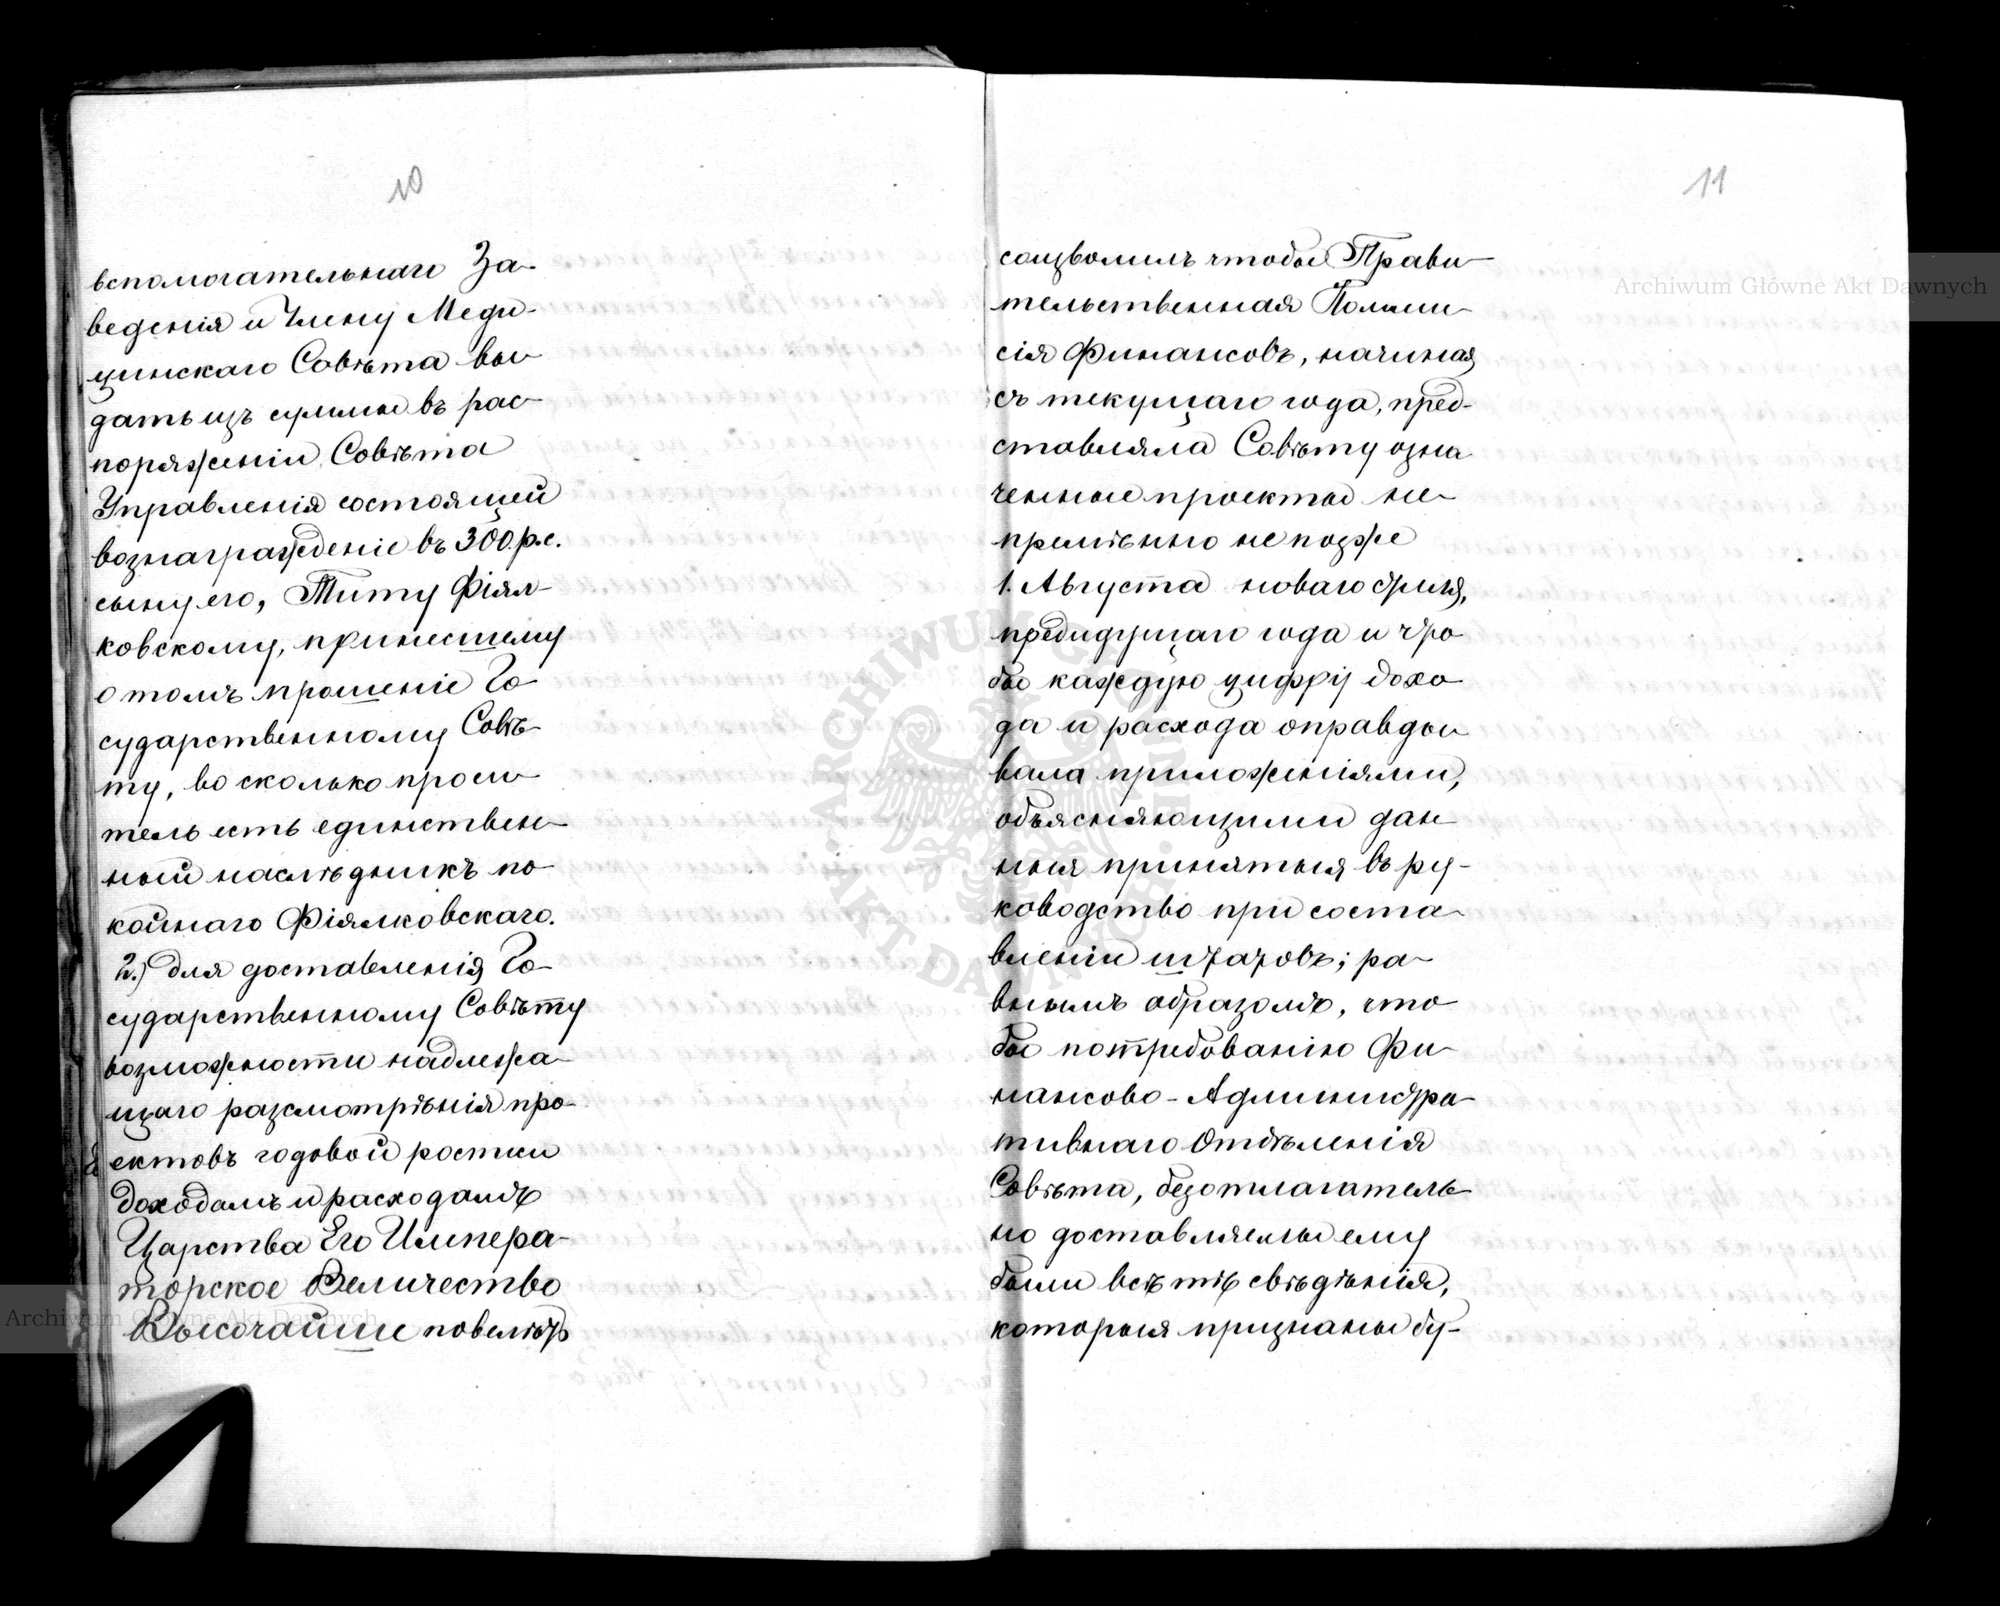 10
вспомогательнаго За-
веденія и Члену Меди-
цинскаго Совѣта вы
дать изъ суммы въ рас-
поряженіи Совѣта
Управленія состоящей
вознагражденіе въ 300 р.с.
сыну его, Титу Фіял-
ковскому, принесшему
о томъ прошеніе Го
сударственному Совѣ-
ту, во сколько проси-
тель есть единствен-
ный наслѣдникъ по
койнаго Фіялковскаго.
2.) для доставленія Го-
сударственному Совѣту
возможности надлежа-
щаго разсмотрѣнія про-
ектовъ годовой росписи
доходамъ и расходамъ
Царства Его Импера-
торское Величество
Высочайше повелѣть
11
соизволилъ чтобы Прави-
тельственная Коммис-
сія Финансовъ, начиная
съ текущаго года, пред-
ставляла Совѣту озна
ченные проекты не-
премѣнно не позже
1. Августа новаго стиля,
предидущаго года и что
бы каждую цифру дохо
да и расхода оправды
вала приложеніями,
объясняющими дан-
ныя принятыя въ ру-
ководство при соста-
вленіи штатовъ; ра-
внымъ образомъ, что
бы потребованію Фи-
нансово-Администра-
тивнаго Отдѣленія
Совѣта, безотлагатель-
но доставляемы ему
были всѣ тѣ свѣдѣнія,
которыя признаны бу-
Archiwum Główne Akt Dawnych
Archiwum Główne Akt Dawnych
ARCHIWUM GŁÓWNE
AKT DAWNYCH